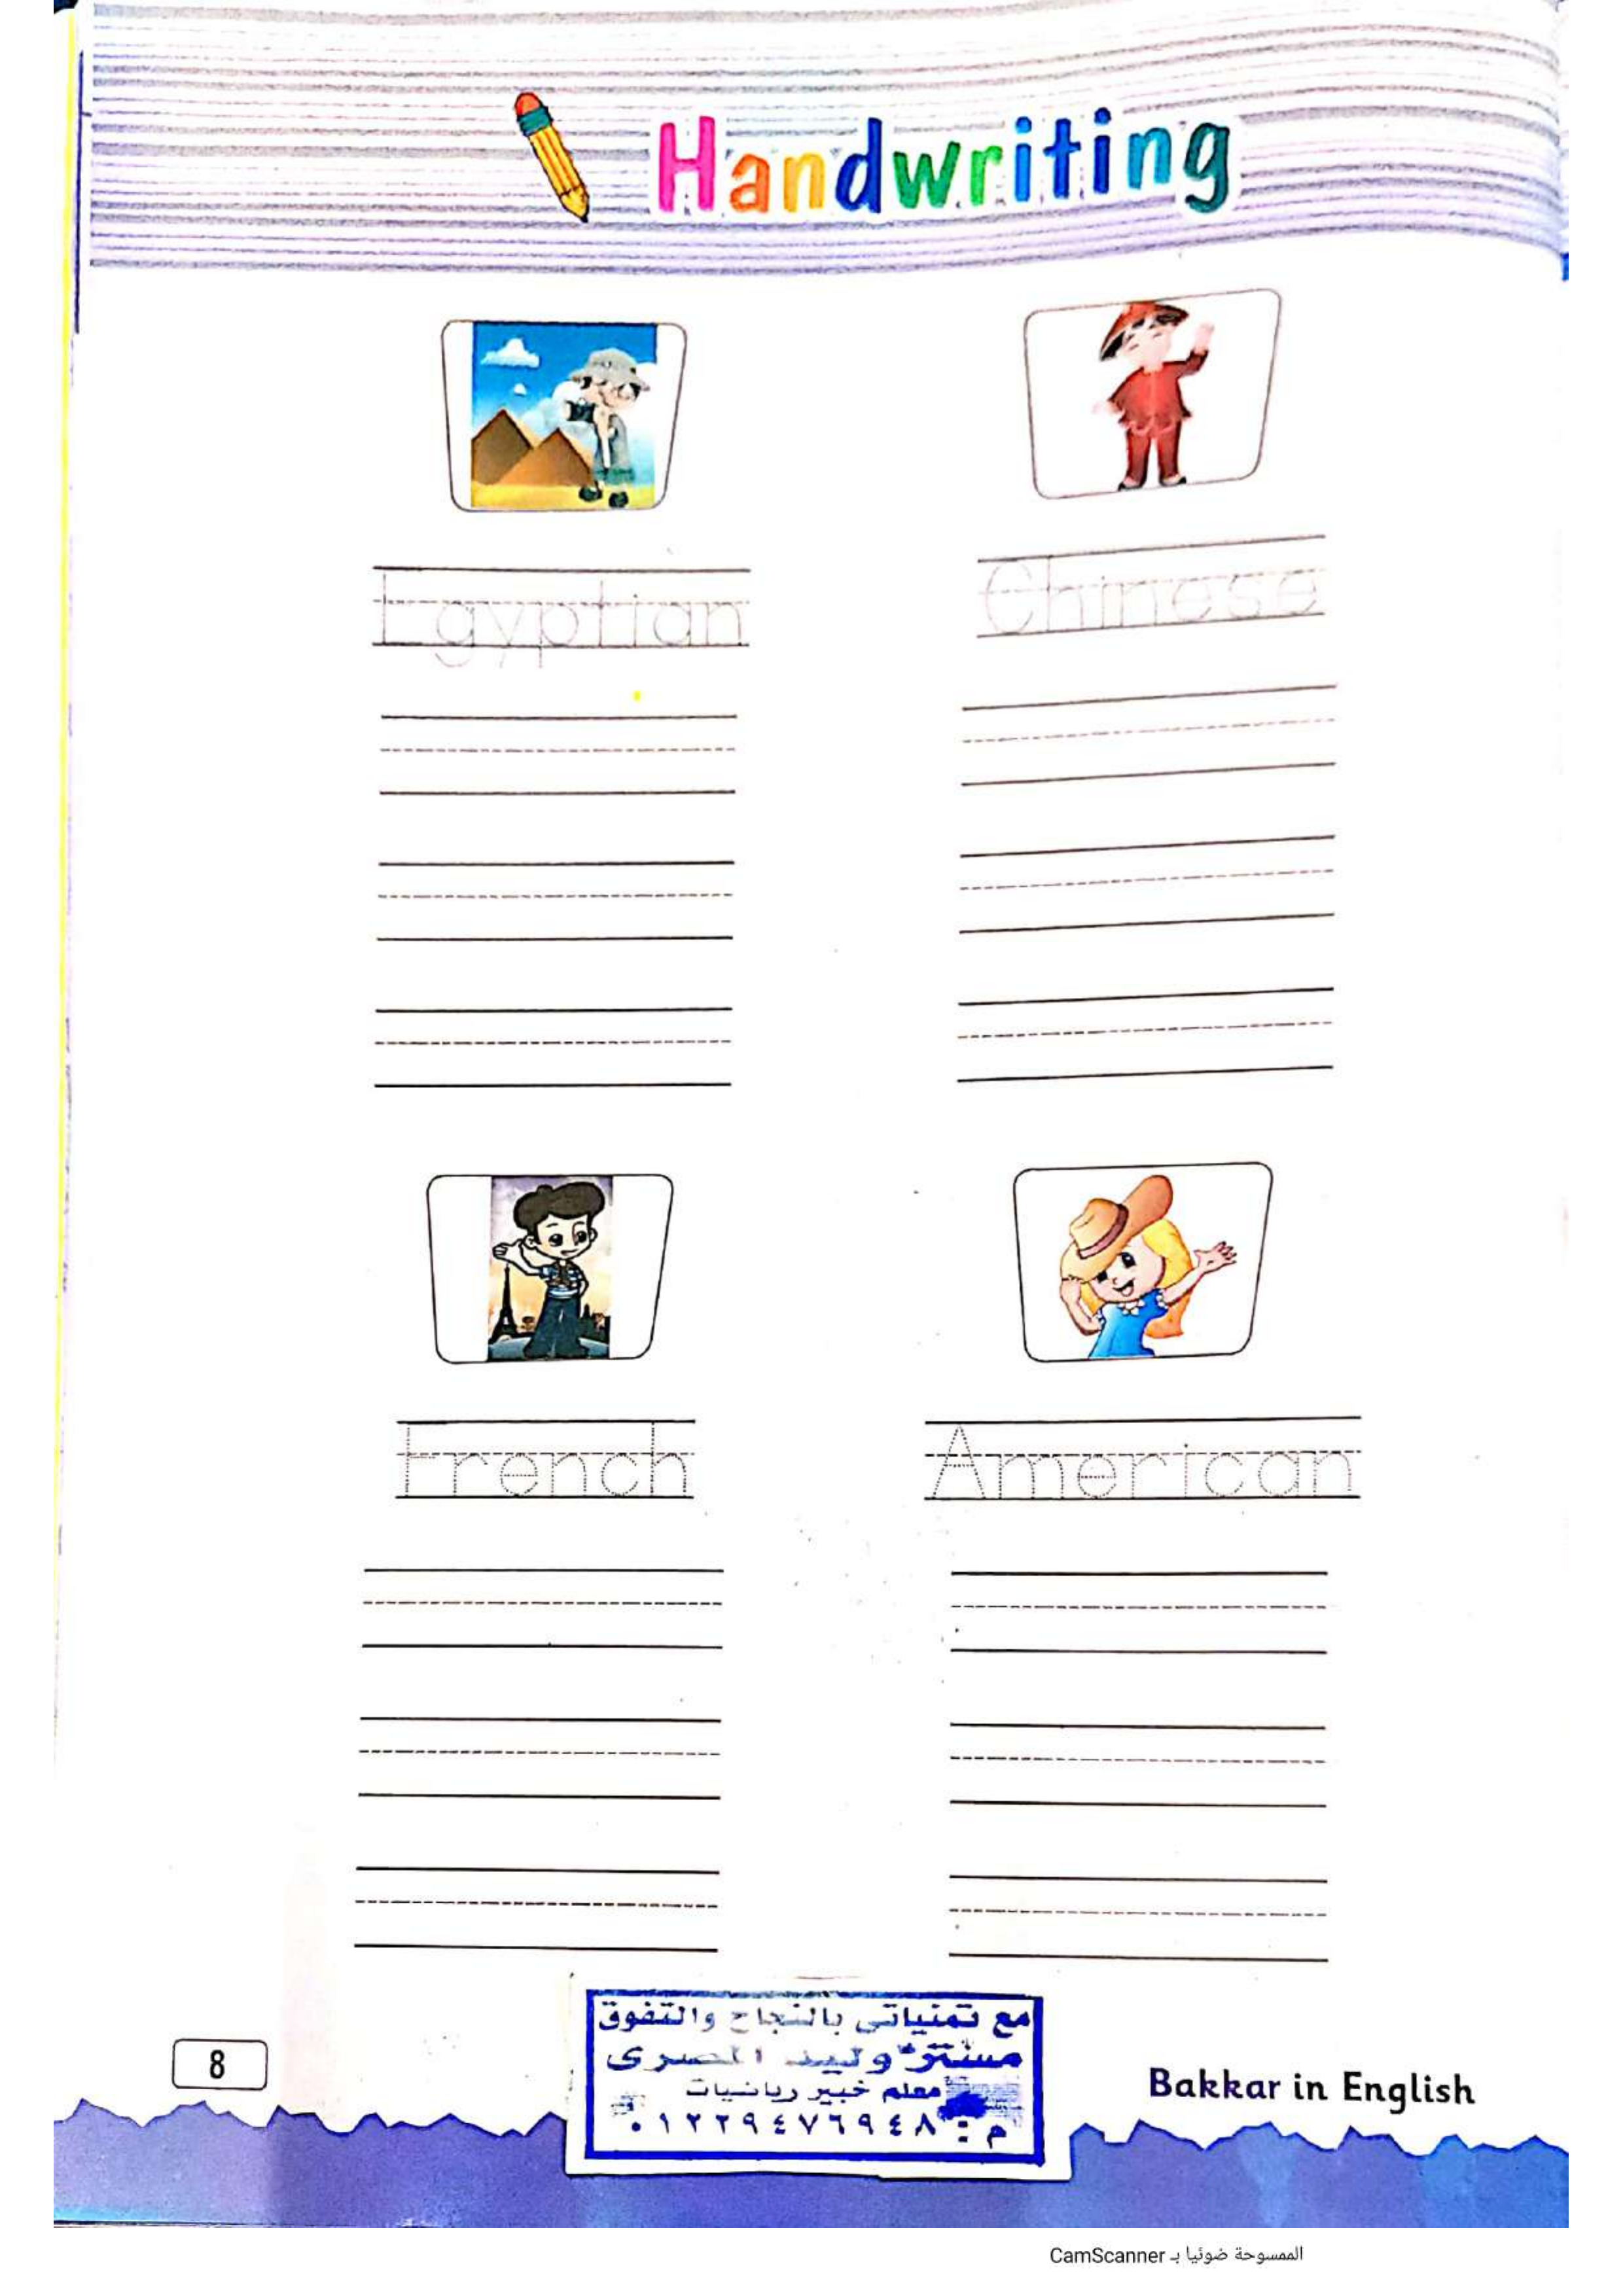 Handwriting
Egyptian
Chinese
French
American
مع تمنياتى بالنجاح والتفوق
مستر وليد المصرى
معلم خبير رياضيات
م : ٠١٢٢٩٤٧٦٩٤٨
8
Bakkar in English
الممسوحة ضوئيا بـ CamScanner